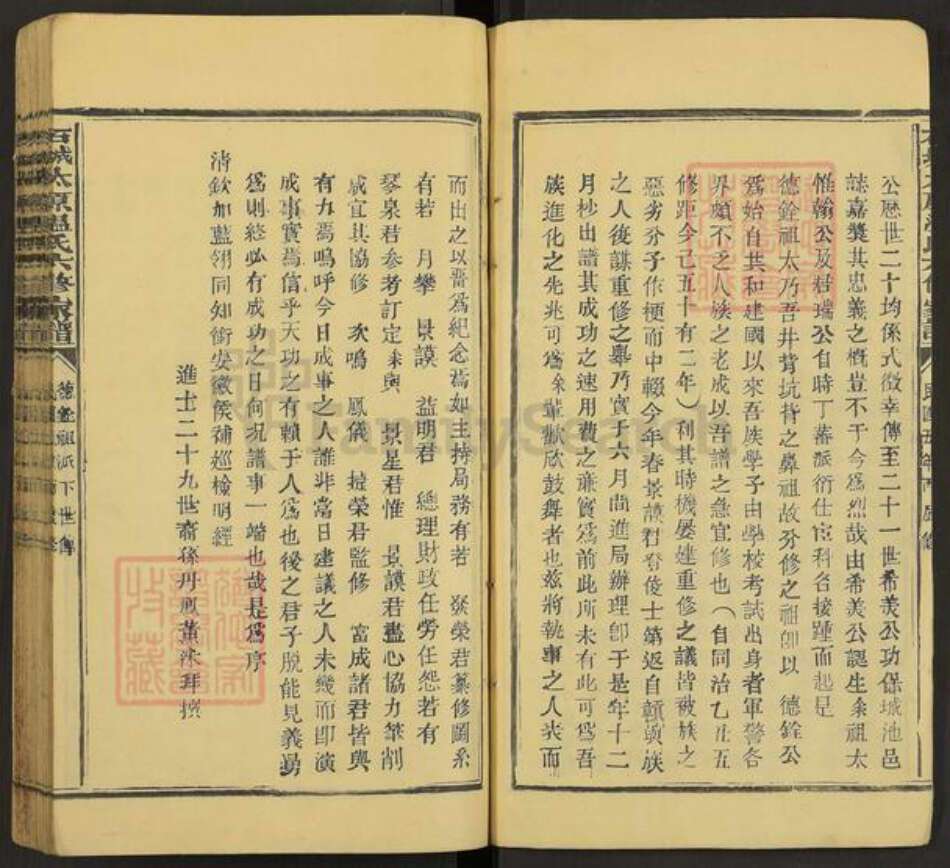 公歷世二十均係式微幸傳至二十一世希義公功保城池邑
誌嘉獎其忠義之慨豈不于今為烈哉由希義公誕生俆祖太
惟翰公及君瑞公自時丁蕃派衍仕宦科名接踵而起是
德銓祖太乃吾井背坑背之鼻祖故分修之祖卽以 德銓公
為始自共和建國以來吾族學子由學校考試出身者軍警各
界頗不乏人族之老成以吾譜之急宜修也(自同治乙丑五
修距今已五十有二年)利其時機屡建重修之議皆被族之
惡劣分子作梗而中輟今年春景謨君登俊士第返自贛議族
之人後謀重修之舉乃實于六月尚進局辦理卽于是年十二
月杪出譜其成功之速用費之亷實為前此所未有此可為吾
族進化之先兆可為俆輩歡欣鼓舞者也茲將執事之人裝而
而出之以誌為紀念焉如主持局務有若 榮君纂修圖系
有若 月攀 景謨 益明君 總理財政任勞任怨若有
琴泉君參考訂定釆與 景星君惟 景謨君盡心協力筆削
咸宜其協修 次鳴 鳳儀 㨗榮君監修 富成諸君皆與
有力焉嗚呼今日成事之人誰非當日建議之人未幾而卽演
成事實焉信乎天功之有賴于人為也後之君子脫能見義勇
為則終必有成功之日何况譜事一端也哉是為序
清欽加藍翎同知銜安徽侯補巡檢明經
進士二十九世裔孫丹鳳薰沐拜撰
石城太原溫氏六修家譜
德銓祖派下世傳